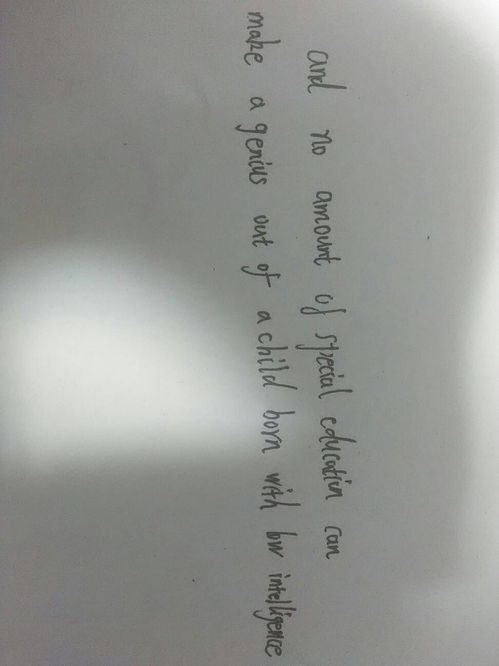 and no amount of special education can
make a genius out of a child born with low intelligence